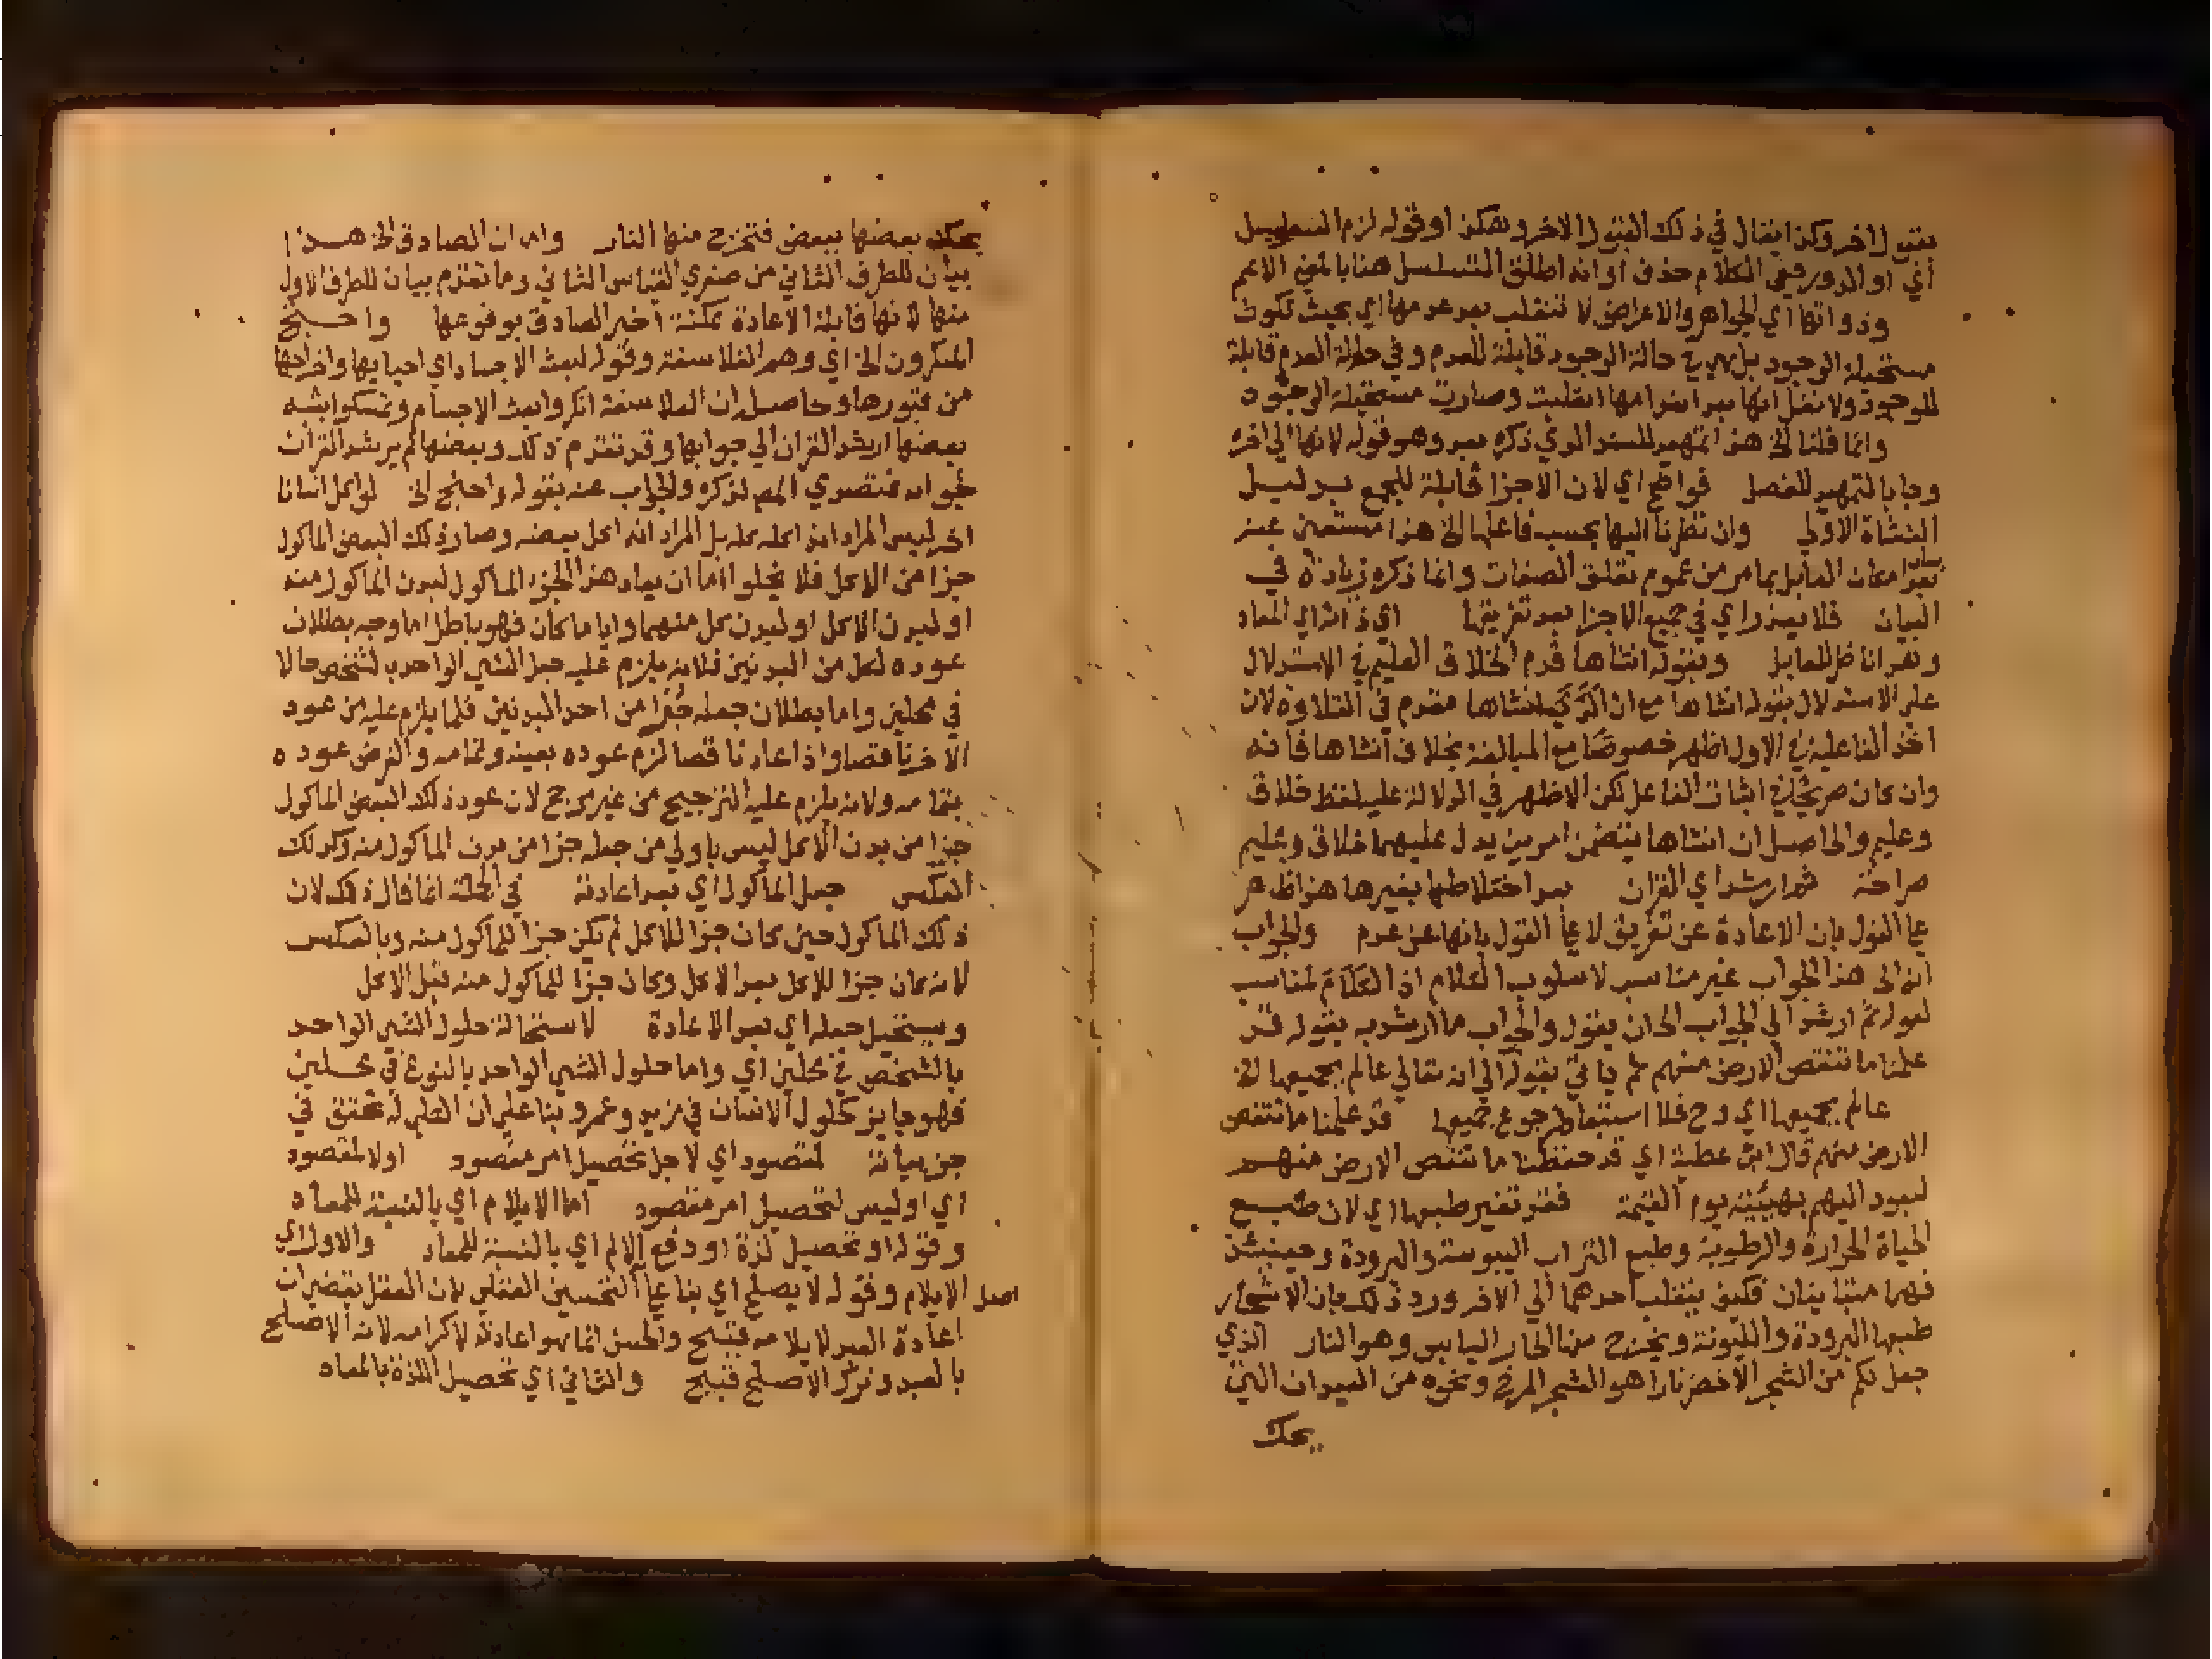 بقبول اخر وكذا يقال في ذلك القبول الاخر وهكذا وقوله لزم التسلسل
اي او الدور ففي الكلام حذف او انه اطلق التسلسل هنا بالمعني الاعم
وذواتها اي الجواهر والاعراض لا تنقلب بعد عدمها اي بحيث تكون
مستحيلة الوجود بل هي في حالة الوجود قابلة للعدم وفي حالة العدم قابلة
للوجود ولا نقل انها بعد انعدامها انقلبت وصارت مستحيلة الوجود
وانما قلنا الخ هذا تمهيد للسند الذي ذكره بعد وهو قوله لانها الي اخره
وجا بالتمهيد للفصل فواضح اي لان الاجزا قابلة للجمع بدليل
النشاة الاولي وان نظرنا اليها بحسب فاعلها الخ هذا مستغني عنه
امكان القابل بما مر من عموم تعلق الصفات وانما ذكره زيادة في
البيان فلا يعذر اي في جميع الاجزا بعد تفريقها اي ذاته اي المعاد
وبقوله انشاها قدم الخلاق العليم في الاستدلال
علي الاستدلال بقوله انشاها مع ان انشاها مقدم في التلاوة لان
اخذ الفاعلية في الاول اظهر خصوصا مع المبالغة بخلاف انشاها فانه
وان كان صريحا في اثبات الفاعل لكن الاظهر في الدلالة عليه لفظ خلاق
وعليم والحاصل ان انشاها يتضمن امرين يدل عليهما خلاق وعليم
صراحة ثم ارشد اي القران بعد اختلاطها بغيرها هذا ظاهر
علي القول بان الاعادة عن تفريق لا علي القول بانها عن عدم والجواب
انه الخ هذا الجواب غير مناسب لاسلوب الكلام اذ الكلام المناسب
لقوله ثم ارشد الي الجواب الخ ان يقول والجواب ما ارشد به بقوله قد
علمنا ما تنقص الارض منهم ثم ياتي بقوله الي انه تعالي عالم بجميعها الخ
عالم بجميعها اي وح فلا استبعاد لرجوع جميعها قد علمنا ما تنقص
الارض منهم قال ابن عطية اي قد حفظنا ما تنقص الارض منهم
ليعود اليهم بهيئته يوم القيمة فقد تغير طبعها اي لان طبع
الحياة الحرارة والرطوبة وطبع التراب اليبوسة والبرودة وحينئذ
فهما متباينان فكيف ينقلب احدهما الي الاخر ورد ذلك بان الاشجار
طبعها البرودة والليونة ويخرج منها الحار اليابس وهو النار الذي
جعل لكم من الشجر الاخضر نارا هو الشجر المرخ ونحوه من العيدان التي
يحك
يحك بعضها ببعض فتخرج منها النار وامان الصادق الخ هذا
بيان للطرف الثاني من صغري القياس الثاني وما تقدم بيان للطرف الاول
منها لانها قابلة الاعادة ممكنة اخبر الصادق بوقوعها واحتج
المنكرون الخ اي وهم الفلاسفة وقوله لبعث الاجساد اي احيايها واخراجها
من قبورها وحاصله ان الفلاسفة انكروا بعث الاجسام وتمسكوا بشبه
بعضها ارشد القران الي جوابها وقد تقدم ذلك وبعضها لم يرشد القران
لجوابه فتصدي المص لذكره والجواب عنه بقوله واحتج الخ لو اكل انسانا
اخر ليس المراد انه اكله كله بل المراد انه اكل بعضه وصار ذلك البعض الماكول
جزا من الاكل فلا يخلوا اما ان يعاد هذا الجزء الماكول لبدن الماكول منه
او لبدن الاكل او لبدن كل منهما وايا ما كان فهو باطل اما وجه بطلان
عوده لكل من البدنين فلانه يلزم عليه جعل الشي الواحد بالشخص حالا
في محلين واما بطلان جعله جزا من احد البدنين فلما يلزم عليه من عود
الاخر ناقصا واذا عاد ناقصا لزم عوده بعينه وتمامه والفرض عوده
بتمامه ولانه يلزم عليه الترجيح من غير مرجح لان عود ذلك البعض الماكول
جزا من بدن الاكل ليس باولي من جعله جزا من بدن الماكول منه وكذلك
العكس جعل الماكول اي بعد اعادته في الجملة انما قال ذلك لان
ذلك الماكول حين كان جزا للاكل لم يكن جزا للماكول منه وبالعكس
لانه كان جزا للاكل بعد الاكل وكان جزا للماكول منه قبل الاكل
ويستحيل جعله اي بعد الاعادة لاستحالة حلول الشي الواحد
بالشخص في محلين اي واما حلول الشي الواحد بالنوع في محلين
فهو جايز كحلول الانسان في زيد وعمرو بنا علي ان الكلي له تحقق في
جزيياته لمقصود اي لاجل تحصيل امر مقصود اولا لمقصود
اي او ليس لتحصيل امر مقصود اما الايلام اي بالنسبة للمعاد
وقوله او تحصيل لذة او دفع الالم اي بالنسبة للمعاد والاول اي
اصل الايلام وقوله لا يصلح اي بنا علي التحسين العقلي لان العقل يقتضي ان
اعادة العبد لايلامه قبيح والحسن انما هو اعادته لاكرامه لانه الاصلح
بالعبد وترك الاصلح قبيح والثاني اي تحصيل اللذة بالمعاد